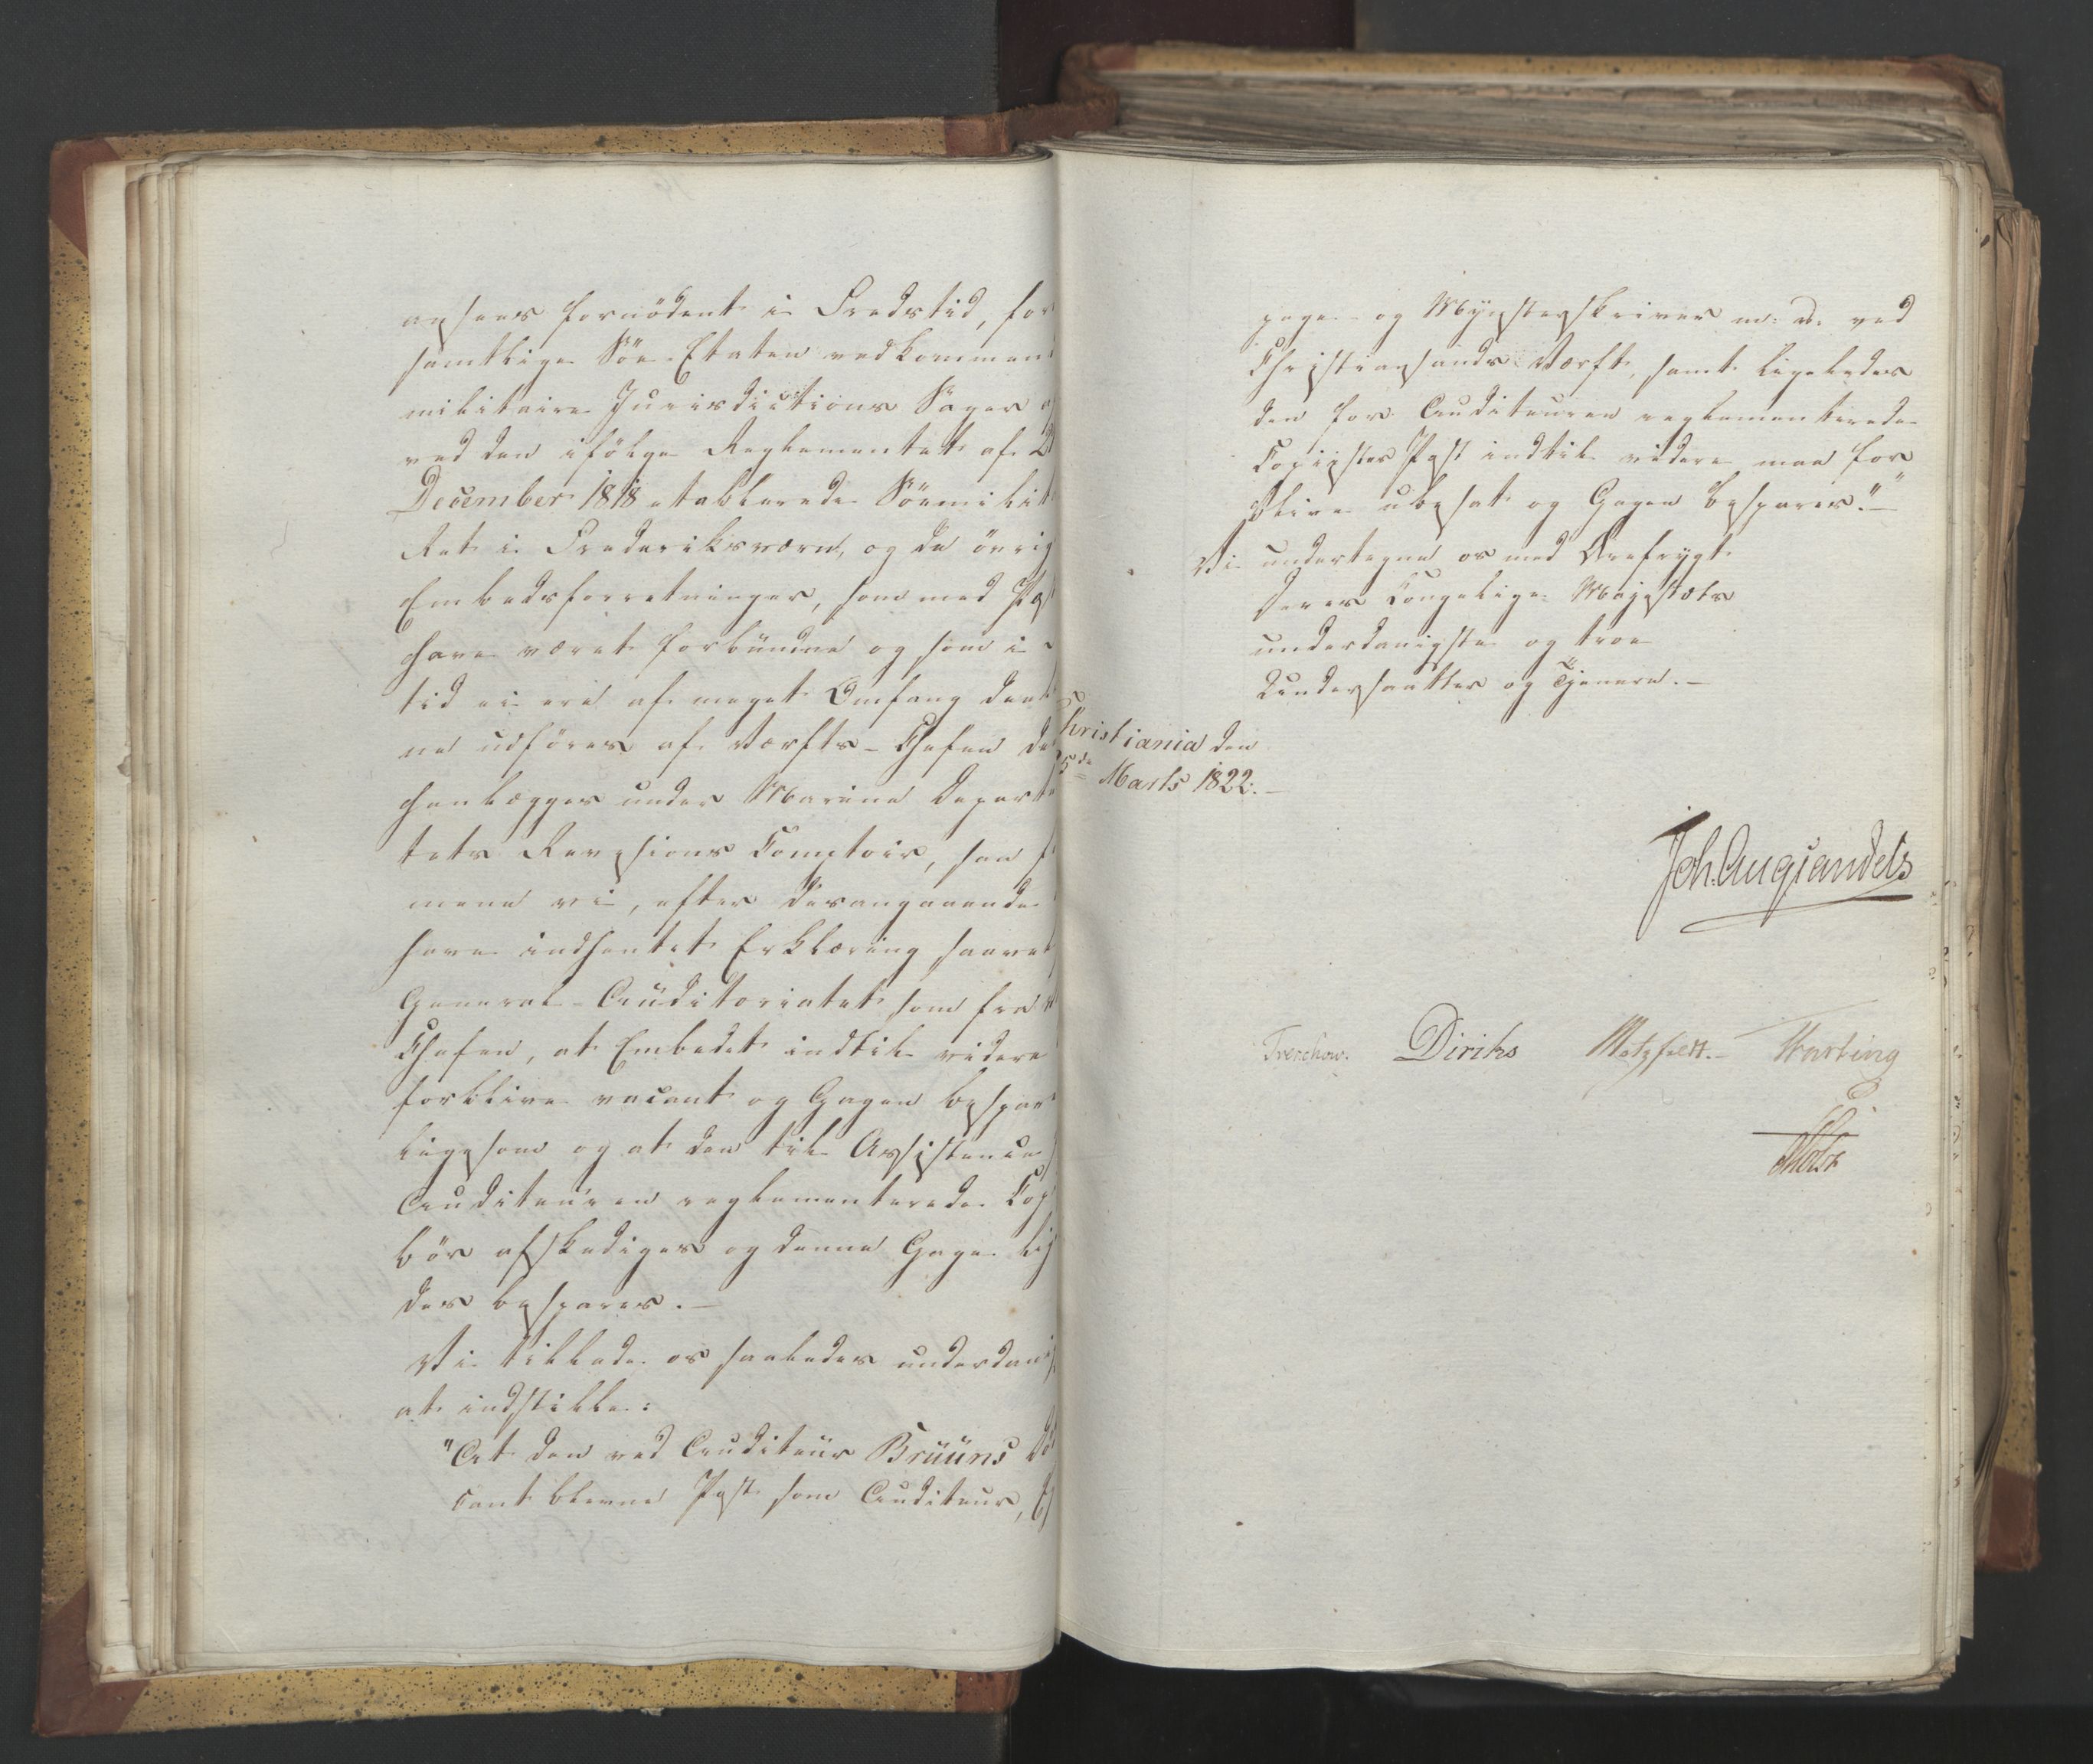 ansees fornödent i Fredstid, for
samtlige Söe-Etaten vedkommend
militaire Jurisdictions Sager
ved den ifölge Reglementet af 2
December 1818 etablerede Söemilit
Ret i Frederiksværn, og de övrig
Embedsforretninger, som med
have været forbundne og som i
tid ei ere af meget Omfang den
ne udföres af Værfts-Chefen
henlægges under Marine Depart
tets Revisions Comptoir, saa
mene vi, efter desangaaende
have indhentet Erklæring saavel
General-Auditoriatet som fra
Chefen, at Embedet indtil videre
forblive vacant og Gagen bespar
ligesom og at den til Assistence
Auditeuren reglementerede Cop
bör afskediges og denne Gage lig
des bespares.—
Vi tillade os saaledes underdan
at indstille:
"At den ved Auditeur Bruuns
cant blevne Post som Auditeur,
page- og Mynsterskriver m: v: ved
Christiansands Værft, samt ligeledes
den for Auditeuren reglementerede
Copistes Post indtil videre maa for
blive ubesat og Gagen bespares."—
Vi undertegne os med Ærefrygt
Deres Kongelige Majestæts
underdanigste og troe
Undersaatter og Tjenere.—
Christiania den
5de Marts 1822.—
Joh. Aug Sandels
Treschow. Diriks Motzfeldt.— Fasting
Holst